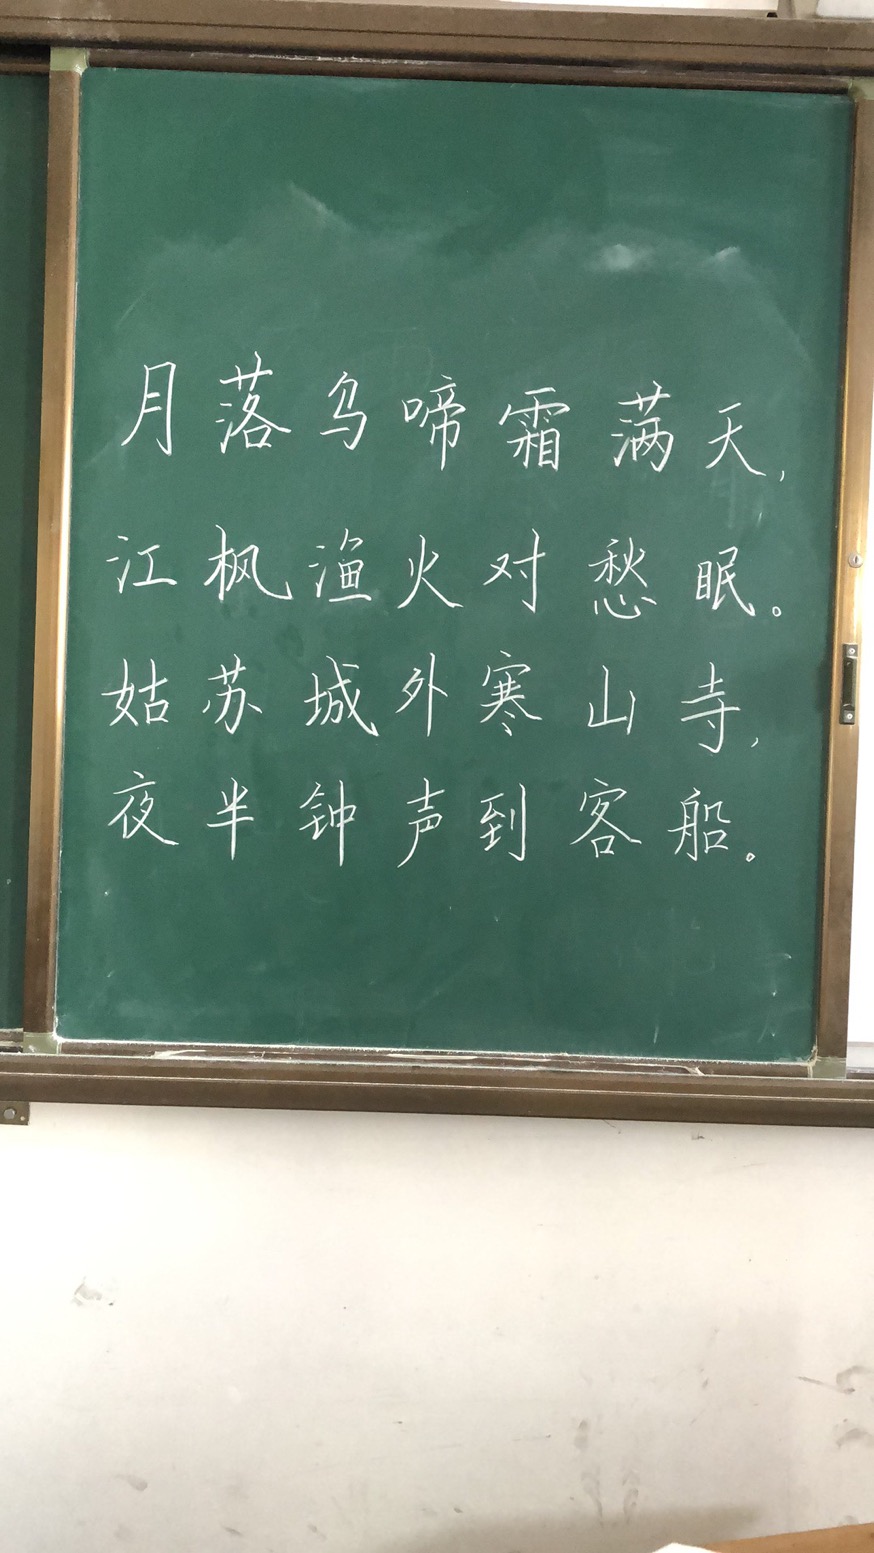 月落乌啼霜满天,
江枫渔火对愁眠。
姑苏城外寒山寺,
夜半钟声到客船。